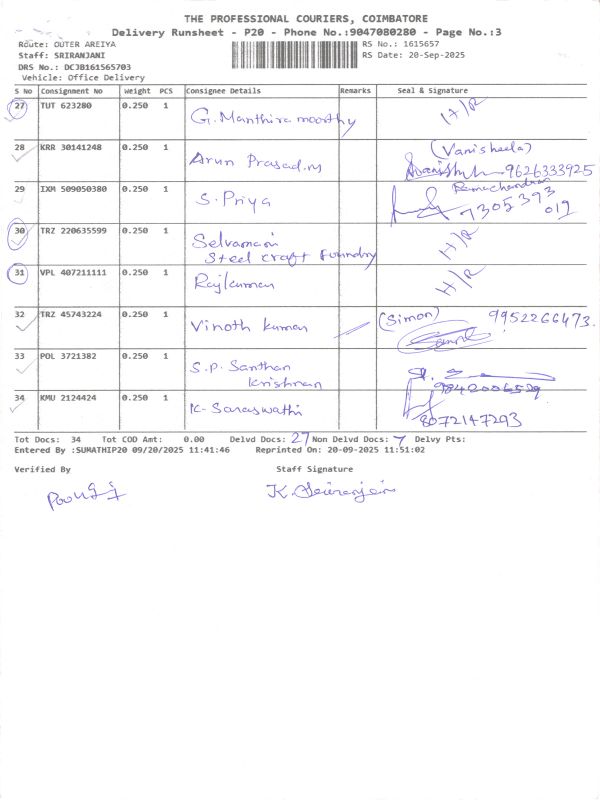 THE PROFESSIONAL COURIERS, COIMBATORE
Delivery Runsheet - P20 - Phone No.:9047080280 - Page No.:3
Route: OUTER AREIYA RS No.: 1615657
Staff: SRIRANJANI RS Date: 20-Sep-2025
DRS No.: DCJB161565703
Vehicle: Office Delivery
S No Consignment No Weight PCS Consignee Details Remarks Seal & Signature
27 TUT 623280 0.250 1 G. Manthiramoorthy H/R
28 KRR 30141248 0.250 1 Arun Prasad.M (Vanisheela) 9626333925
29 IXM 509050380 0.250 1 S. Priya Ramachandran 7305393
019
30 TRZ 220635599 0.250 1 Selvamani H/R
Steel craft Foundry
31 VPL 407211111 0.250 1 Rajkumar H/R
32 TRZ 45743224 0.250 1 Vinoth kumar (Simon) 9952266473.
33 POL 3721382 0.250 1 S.P. Santhan
Krishnan 9842006529
34 KMU 2124424 0.250 1 K. Saraswathi 8072147293
Tot Docs: 34 Tot COD Amt: 0.00 Delvd Docs: 27 Non Delvd Docs: 7 Delvy Pts:
Entered By :SUMATHIP20 09/20/2025 11:41:46 Reprinted On: 20-09-2025 11:51:02
Verified By Staff Signature